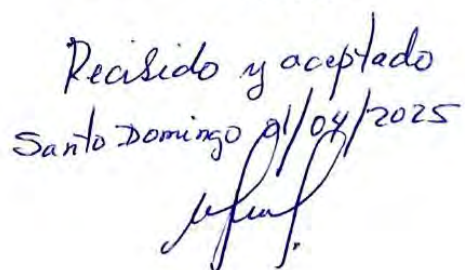 Recibido y aceptado
Santo Domingo 01/04/2025